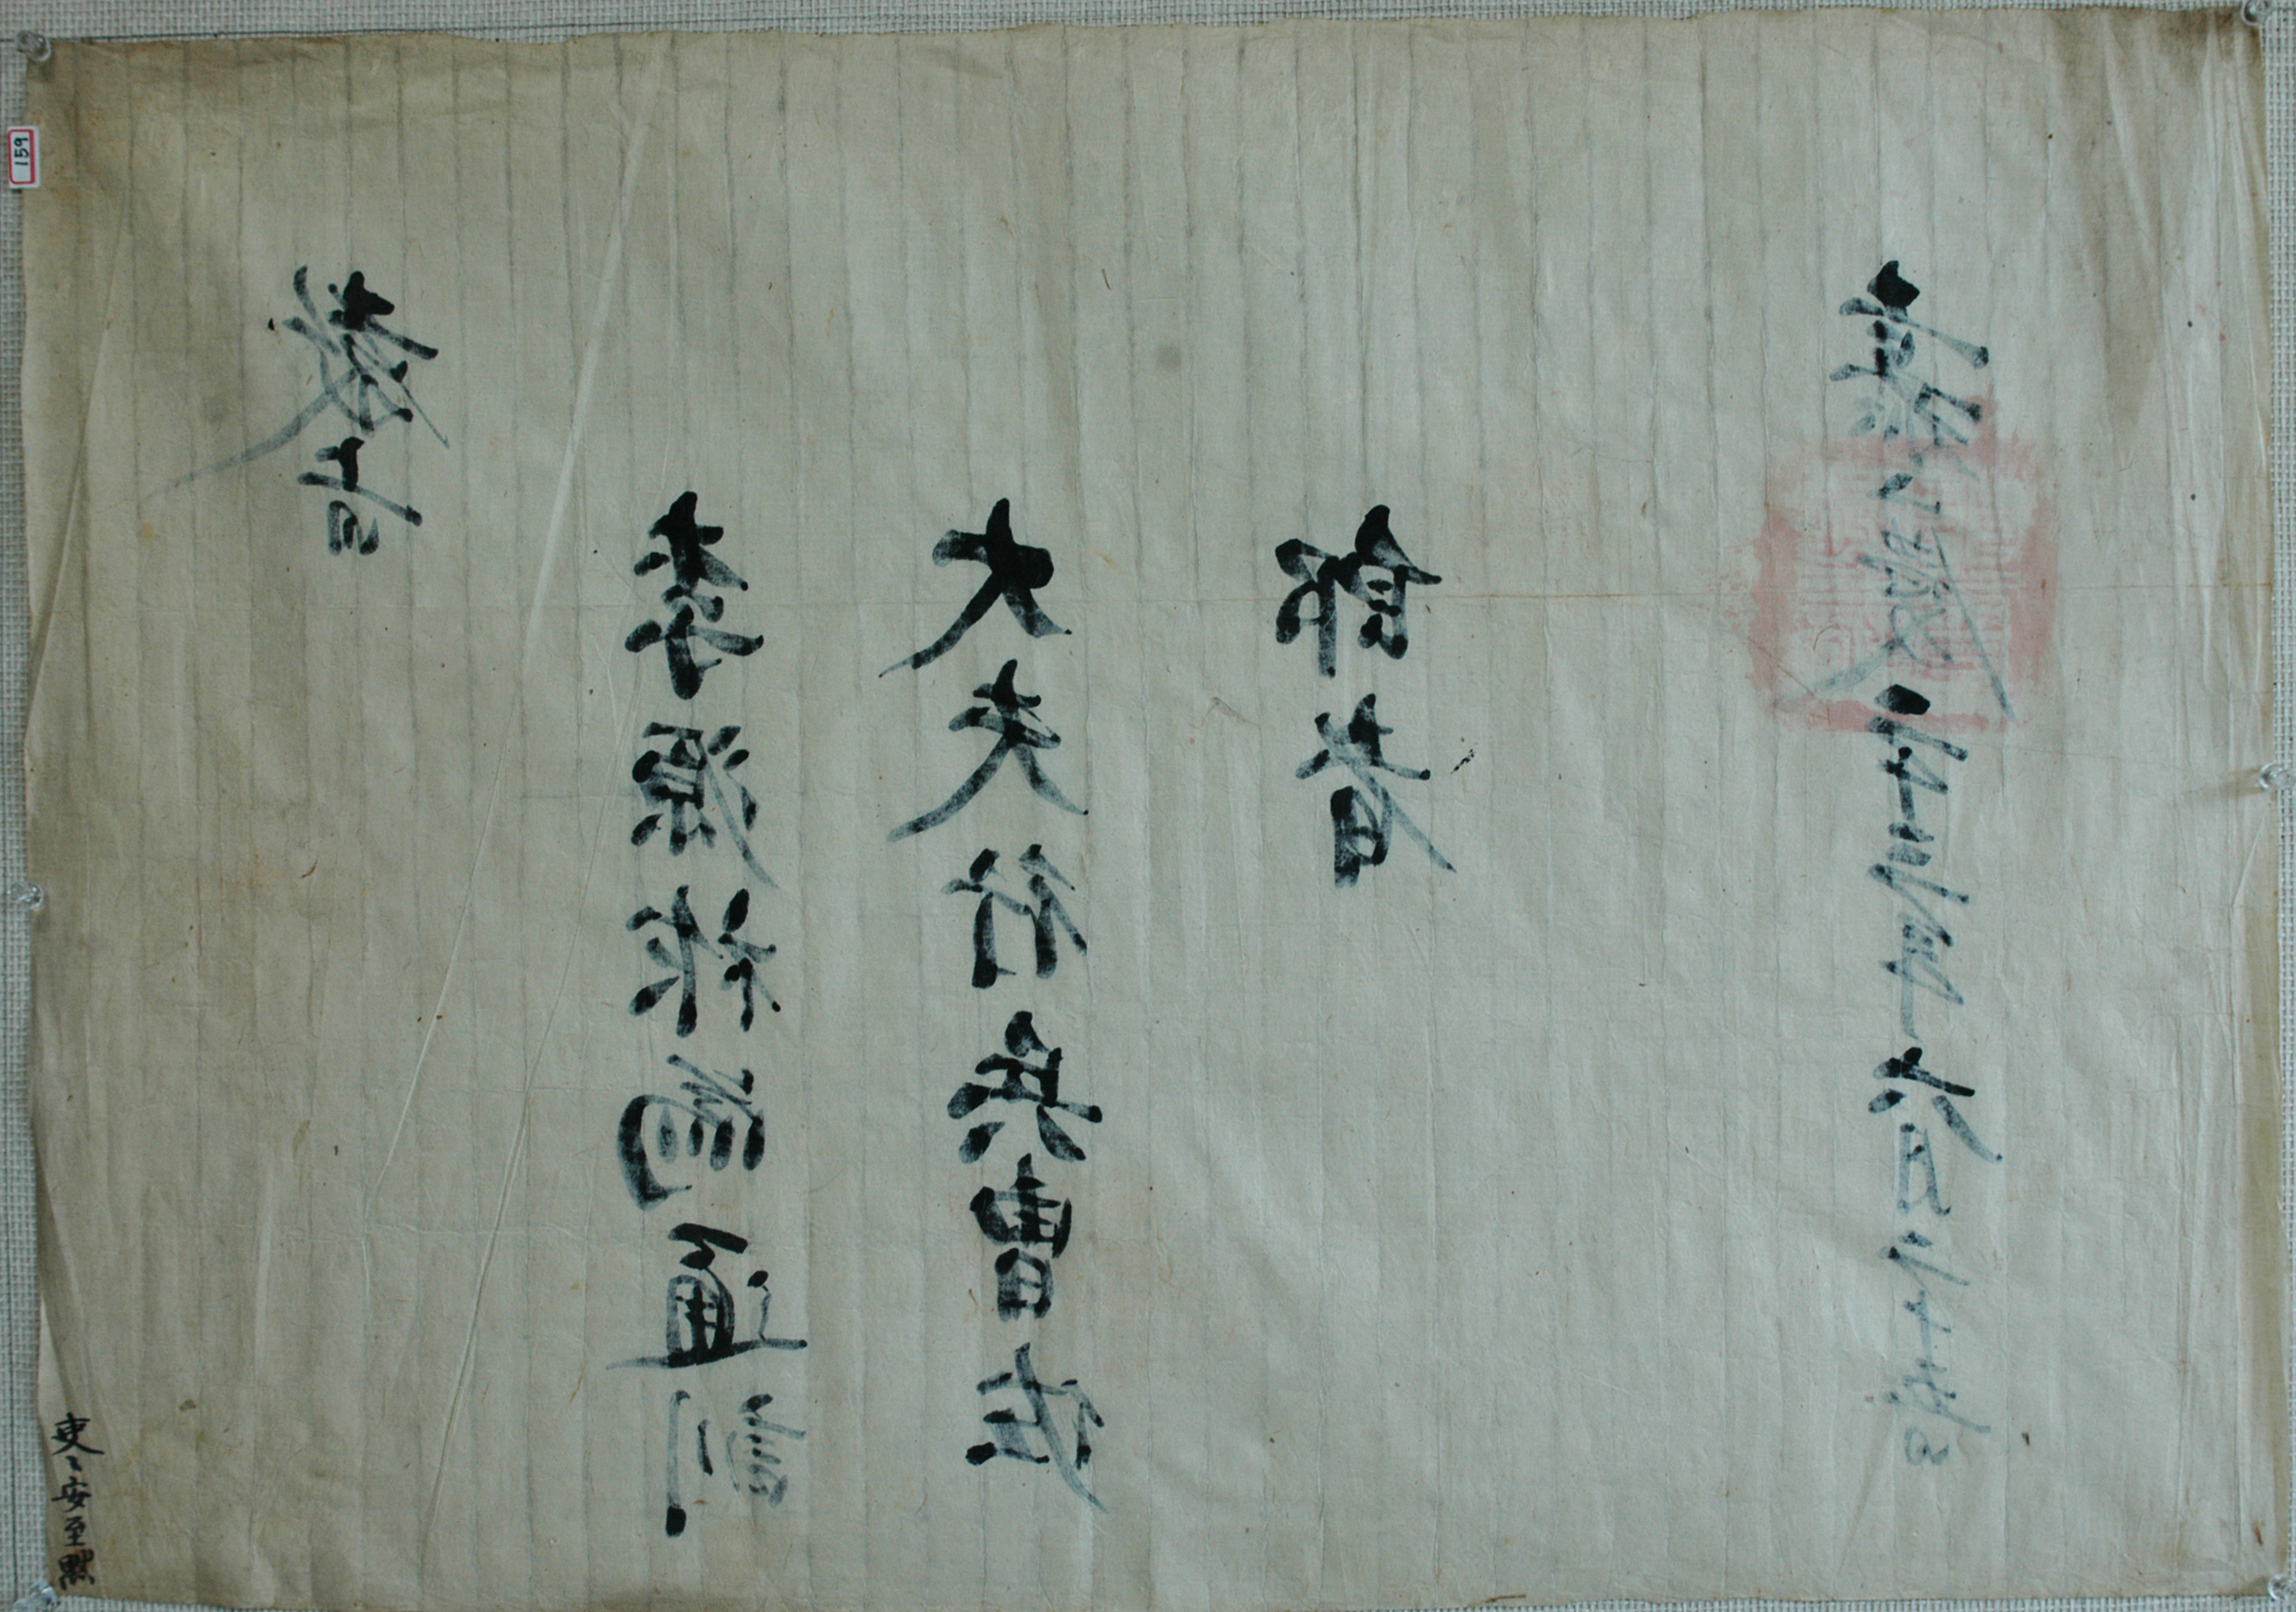 敎旨
李源祚爲通訓
大夫行兵曹佐
郎者
嘉慶二十年六月二十日
吏〻安至默
159